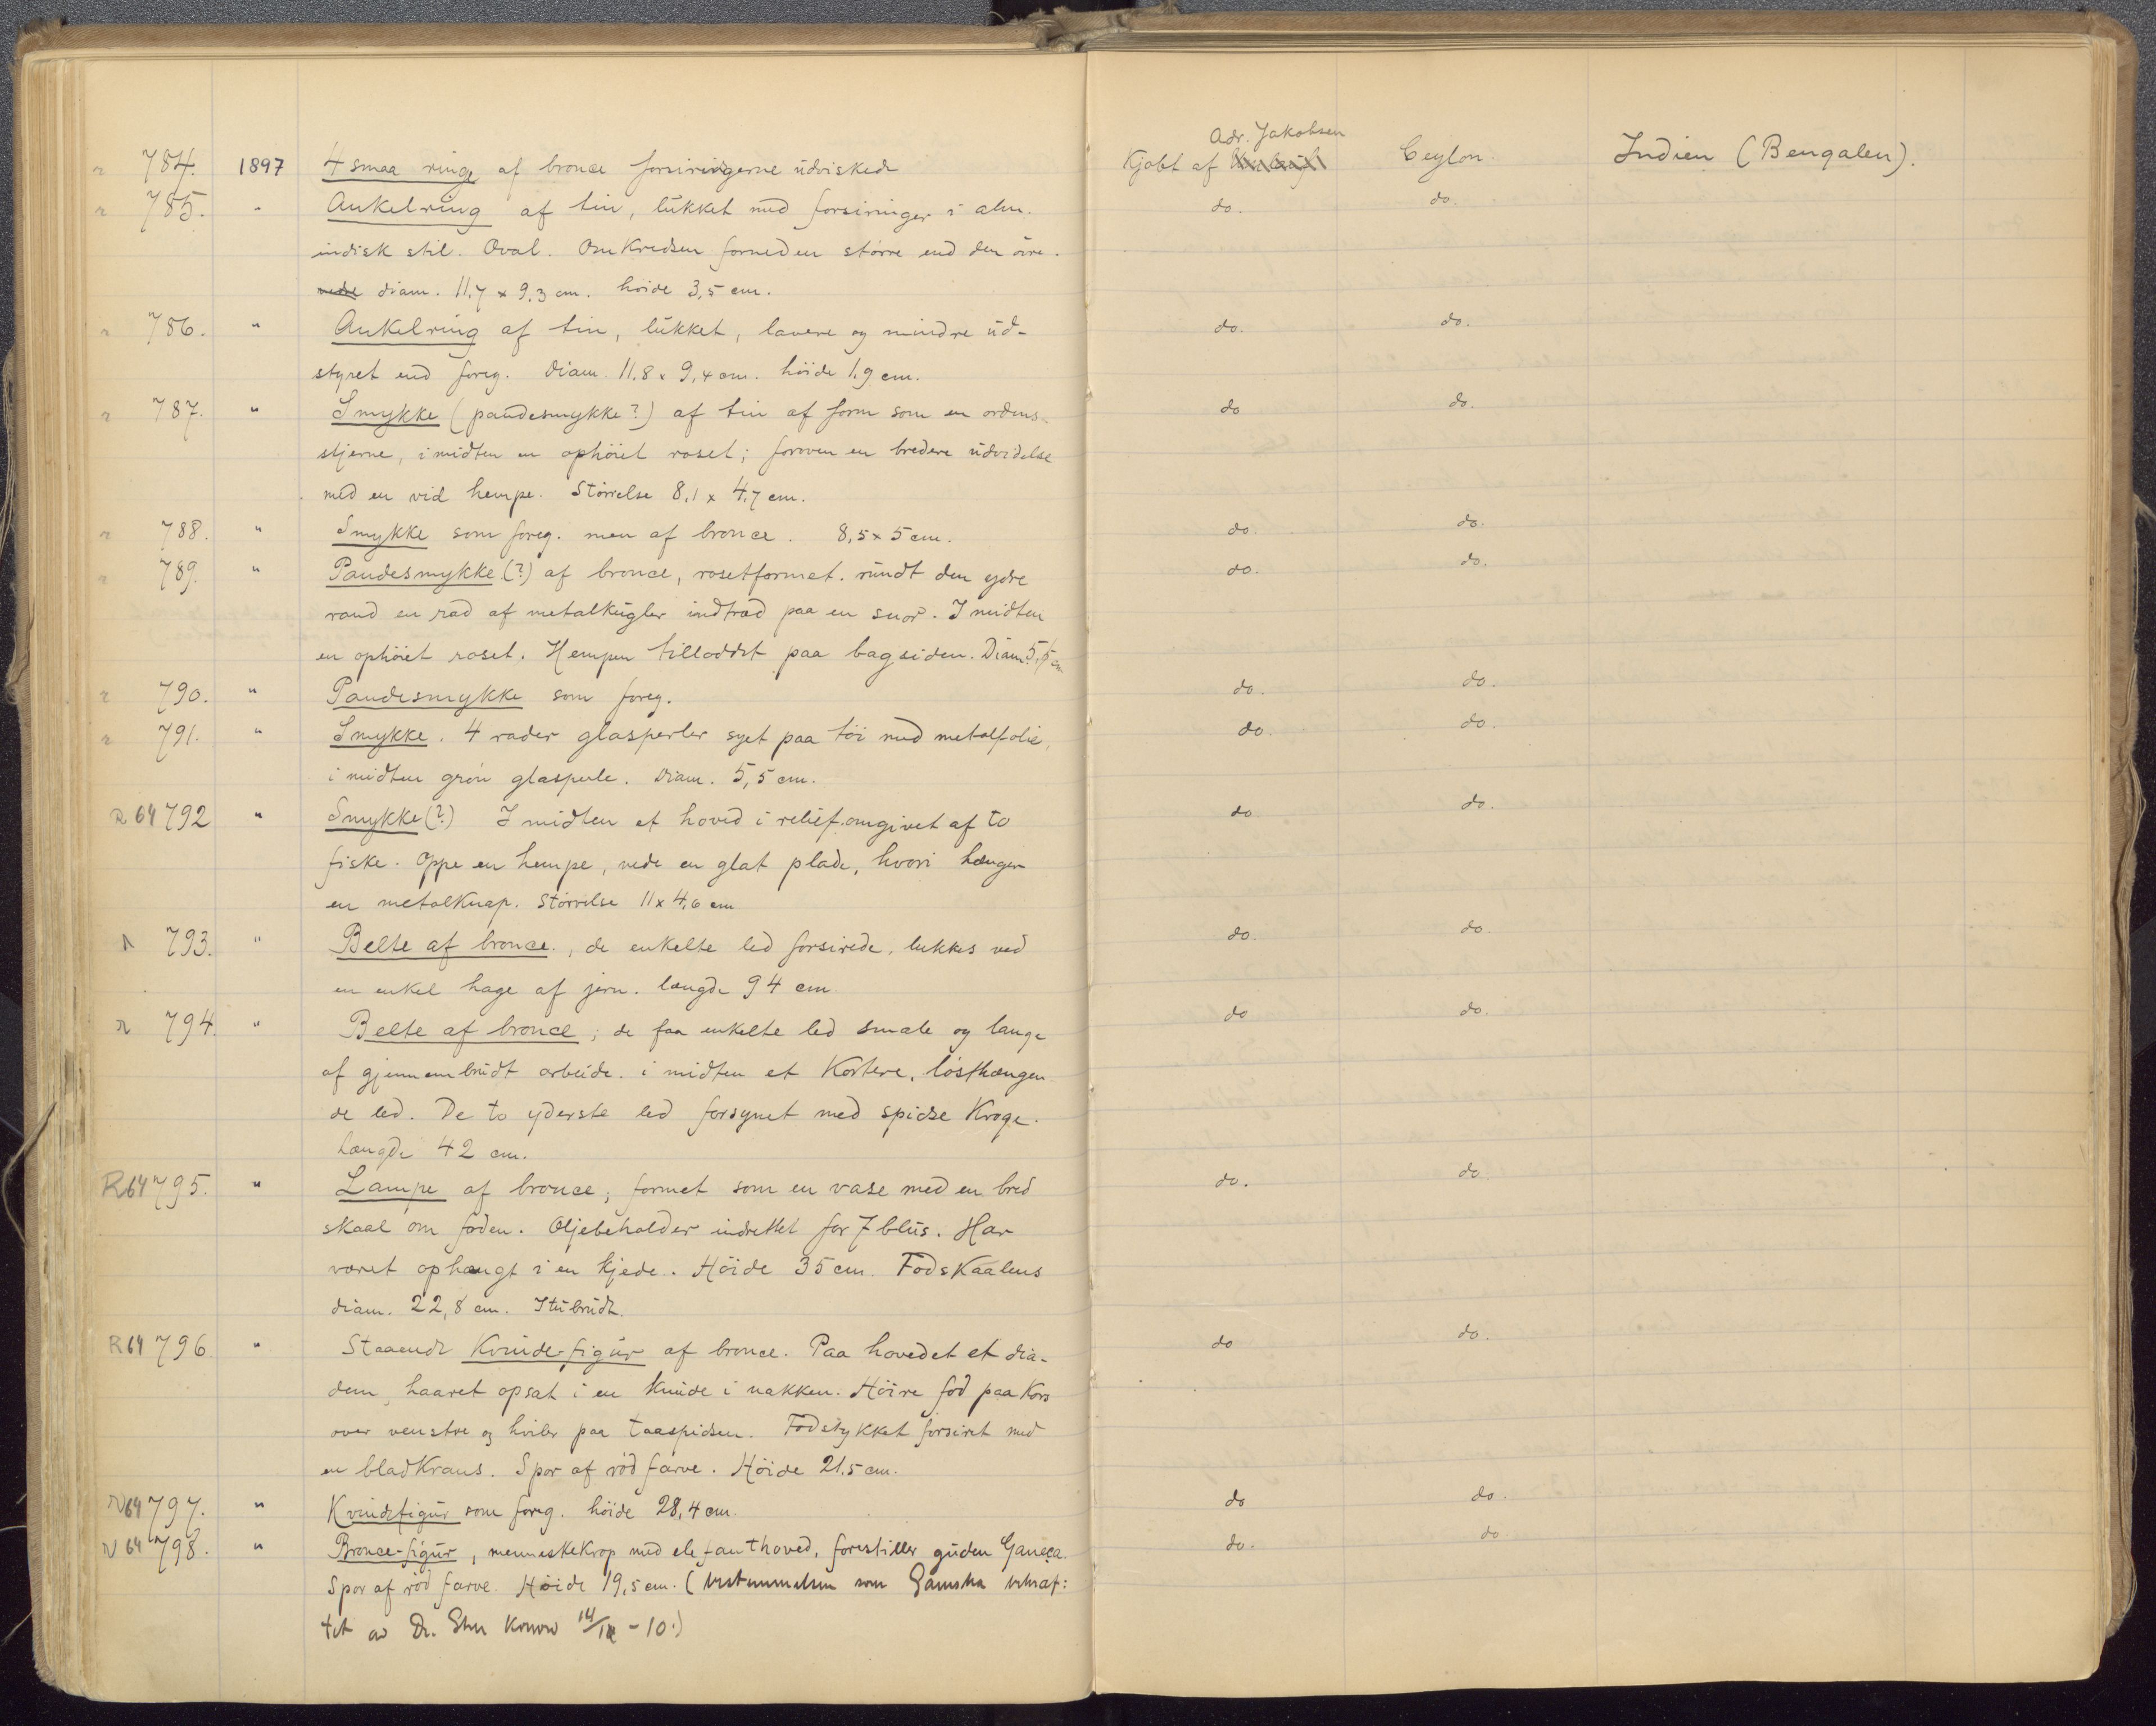 Adr. Jakobsen
r 784. 1897 4 smaa ringe af bronce forsiringerne údviskede Kjøbt af Ceylon. Indien (Bengalen).
r 785. " Ankelring af tin, lúkket med forsiringer i alm. do. do.
indisk stil. Oval. Omkredsen forneden større end den övre.
nede diam. 11,7 x 9,3 cm. höide 3,5 cm.
r 786. " Ankelring af tin, lúkket, lavere og mindre úd- do. do.
styret end foreg. Diam. 11,8 x 9,4 cm. höide 1,9 cm.
r 787. " Smykke (pandesmykke?) af tin af form som en ordens- do do.
stjerne, i midten en ophöiet roset; foroven en bredere údvidelse
med en vid hempe. Störrelse 8,1 x 4,7 cm.
r 788. " Smykke som foreg. men af bronce. 8,5 x 5 cm. do. do.
r 789. " Pandesmykke (?) af bronce, rosetformet. rúndt den ydre do. do.
rand en rad af metalkúgler indtrad paa en snor. I midten
en ophöiet roset. Hempen tilloddet paa bagsiden. Diam. 5,5 cm
r 790. " Pandesmykke som foreg. do. do.
r 791. " Smykke. 4 rader glasperler syet paa töi med metalfolie, do. do.
i midten grön glasperle. Diam. 5,5 cm.
R 64 792 " Smykke (?) I midten et hoved i relief omgivet af to do do.
fiske. Oppe en hempe, nede en glat plade, hvori hænger
en metalknap. Störrelse 11 x 4,6 cm
r 793. " Belte af bronce., de enkelte led forsirede, lukkes ved do. do.
en enkel hage af jern. længde 94 cm
r 794. " Belte af bronce, de faa enkelte led smale og lange do do.
af gjennembrúdt arbeide. i midten et kortere, lösthængen
de led. De to yderste led forsynet med spidse Kroge.
Længde 42 cm.
R 64 795. " Lampe af bronce, formet som en vase med en bred do. do.
skaal om foden. Oljebeholder indrettet for 7 blús. Har
været ophængt i en kjede. Höide 35 cm. Fodskaalens
diam. 22,8 cm. Itúbrúdt.
R 64 796. " Staaende Kvinde-figúr af bronce. Paa hovedet et dia- do do.
dem, haaret opsat i en knúde i nakken. Höire fod paa Kors
over venstre og hviler paa taaspidsen. Fodstykket forsiret med
en bladkrans. Spor af röd farve. Höide 21,5 cm.
R 64 797. " Kvindefigúr som foreg. höide 28,4 cm. do do.
R 64 798. " Bronce-figúr, menneskekrop med elefanthoved, forestiller gúden Ganeça. do. do.
Spor af röd farve. Höide 19,5 cm. (Bestemmelsen som Ganesha bekræf:
tet av Dr. Sten Konow -10.)